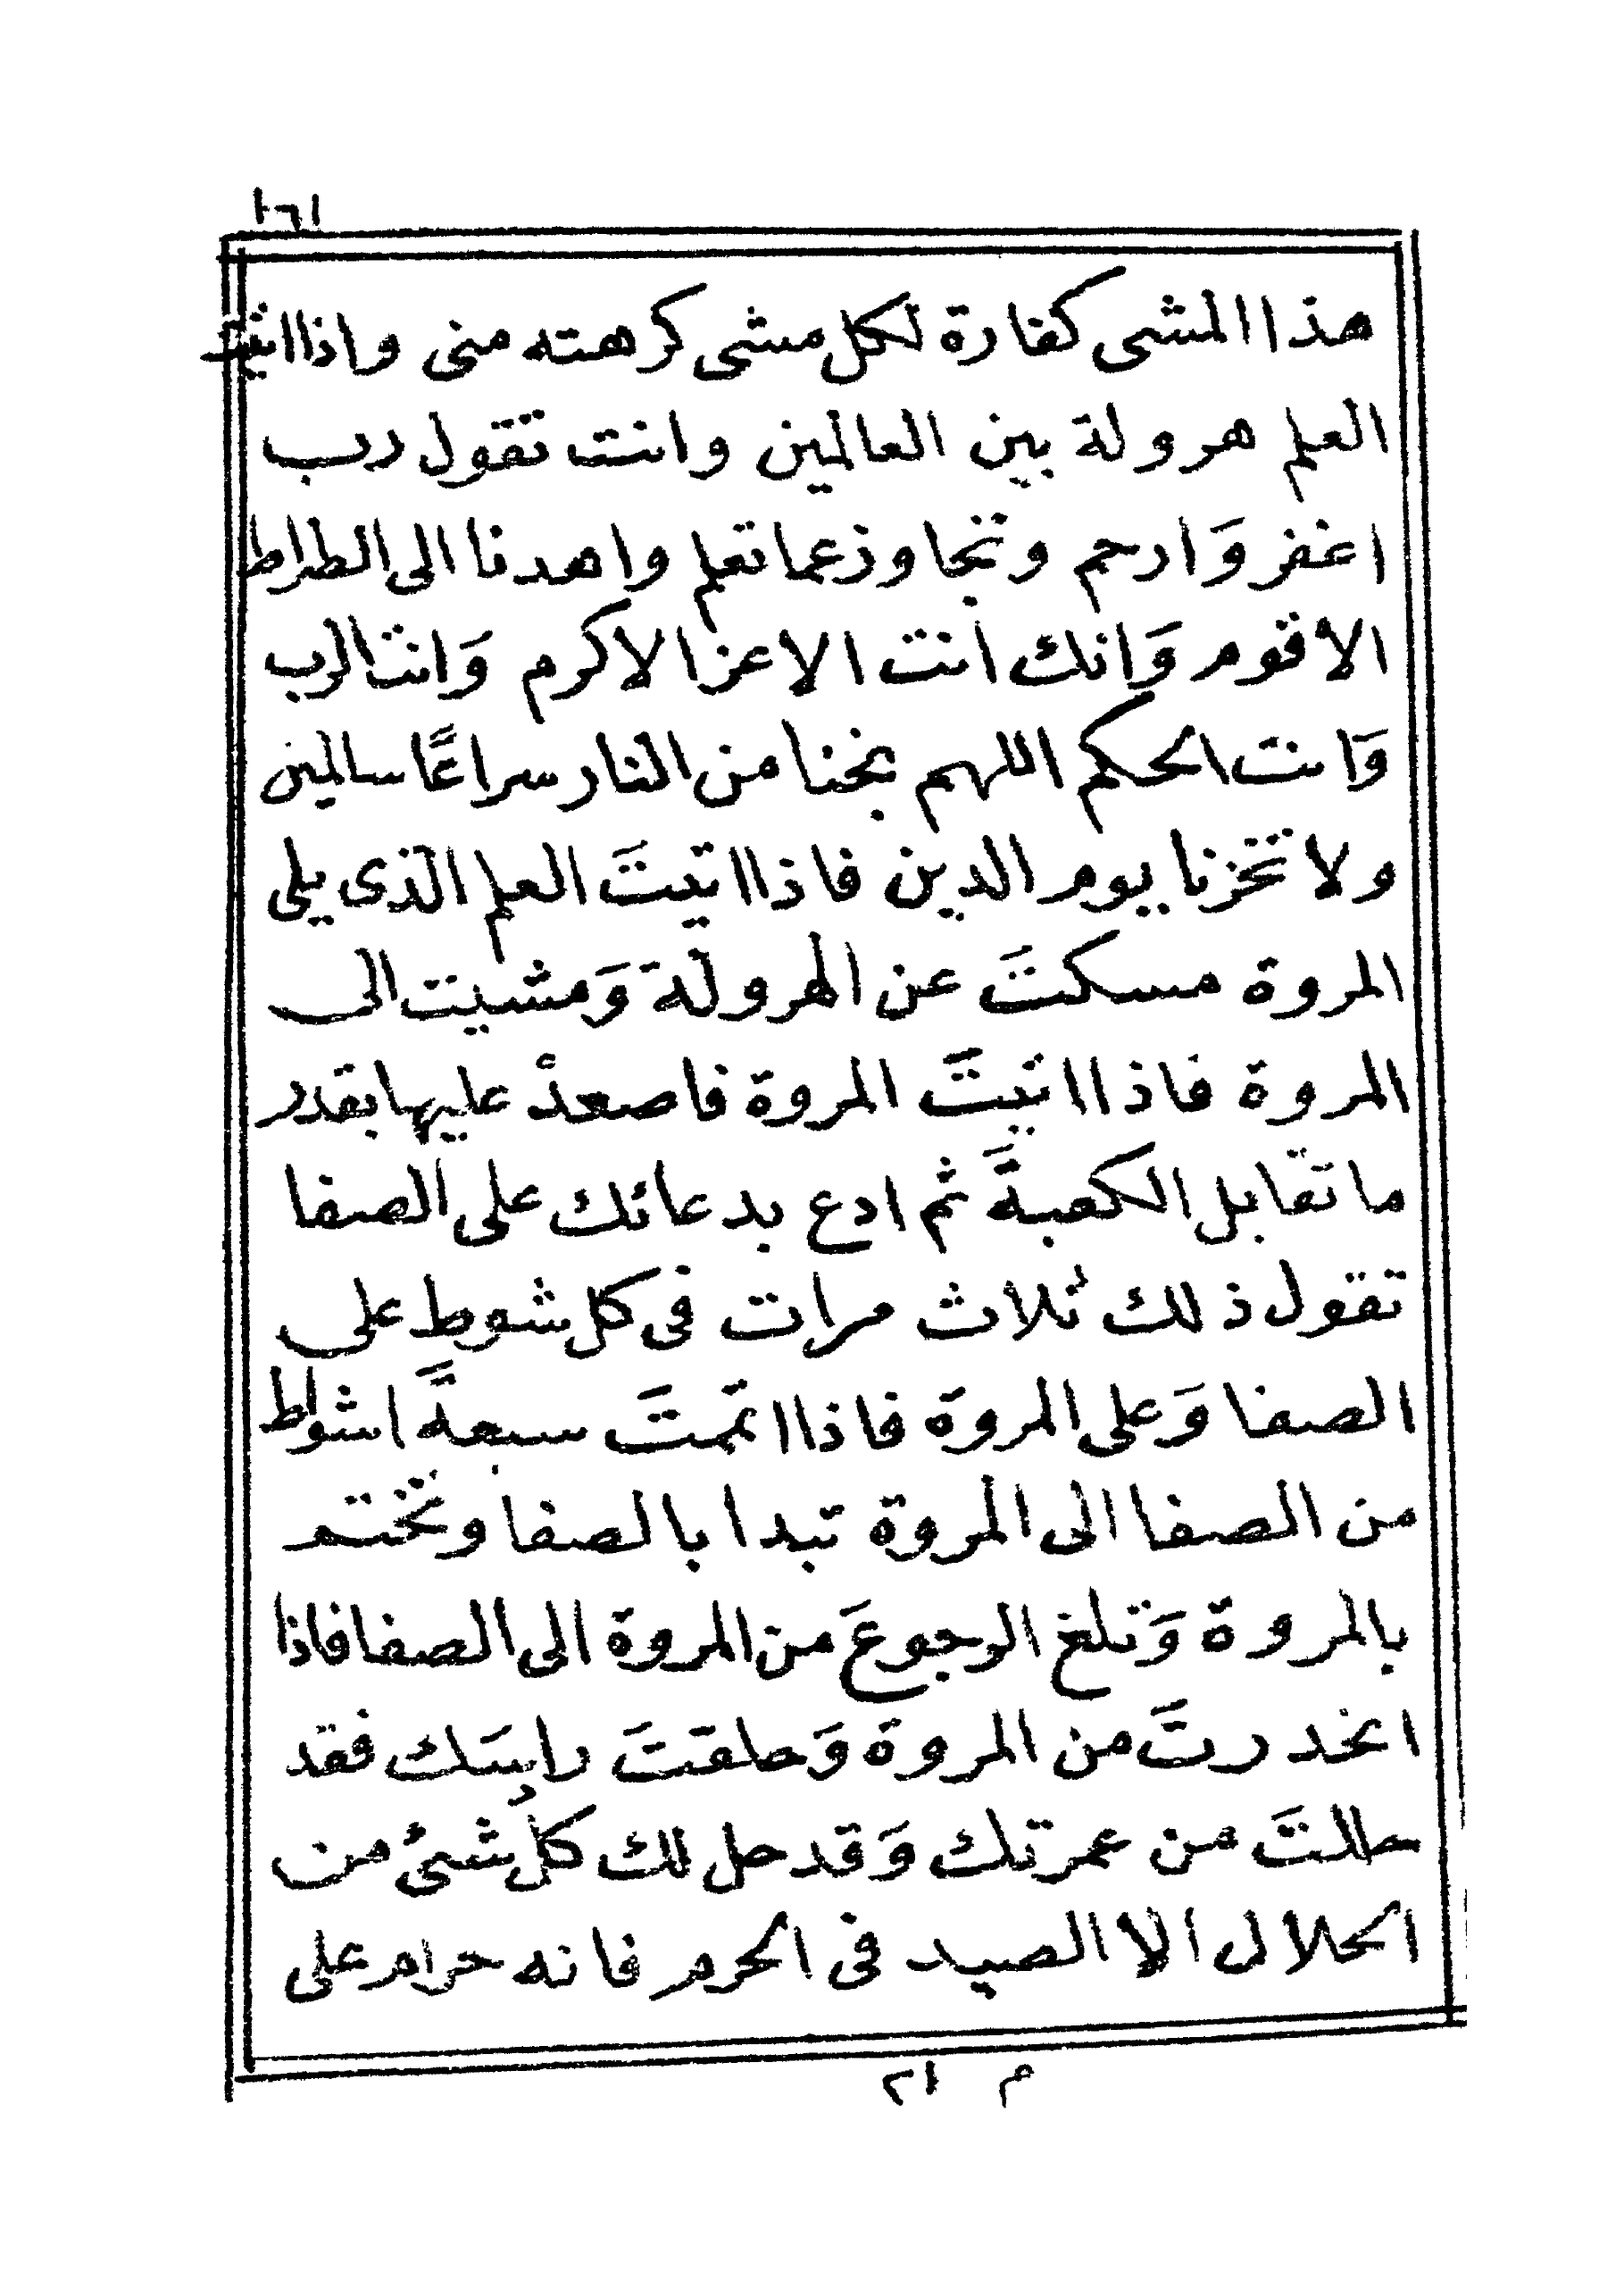 ١٦١
هذا المشى كفارة لكل مشى كرهته منى واذا اتيت
العلم هرولة بين العالمين وانت تقول رب
اغفر وَارحم وتجاوز عما تعلم واهدنا الى الطراط
الاقوم وَانك انت الاعز الاكرم وَانت الرب
وَانت الحكم اللهم نجنا من النار سراعًا سالمين
ولا تخزنا يوم الدين فاذا اتيتَ العلم الذى يلى
المروة مسكتَ عن الهرولة وَمشيت الى
المروة فاذا اتيتَ المروة فاصعدْ عليها بقدر
ما تقابل الكعبةَ ثم ادع بدعائك على الصفا
تقول ذلك ثلاث مرات فى كل شوط على
الصفا وَعلى المروة فاذا اتممتَ سبعةَ اشواط
من الصفا الى المروة تبدا بالصفا وتختم
بالمروة وَتلغ الرجوعَ من المروة الى الصفا فاذا
انحدرتَ من المروة وَحلقتَ راسَك فقد
حللتَ من عمرتك وَقد حل لك كلُ شىُ من
الحلال الا الصيد فى الحرم فانه حرام على
م ٢١